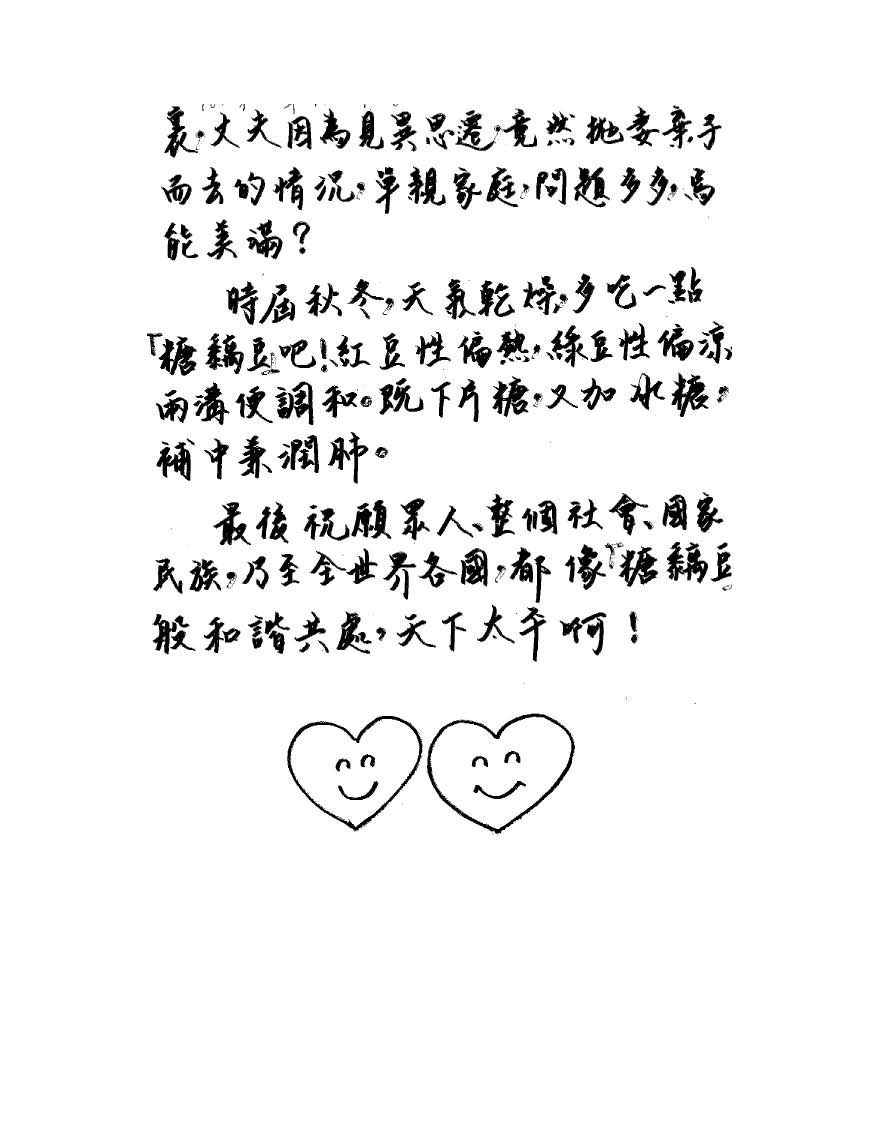 裏，丈夫因為見異思遷，竟然拋妻棄子
而去的情況，單親家庭，問題多多，焉
能美滿？
時屆秋冬，天氣乾燥，多吃一點
「糖藕豆」吧！紅豆性偏熱，綠豆性偏涼，
兩溝便調和。既下片糖，又加冰糖，
補中兼潤肺。
最後祝願眾人、整個社會、國家
民族，乃至全世界各國，都像「糖藕豆」
般和諧共處，天下太平啊！